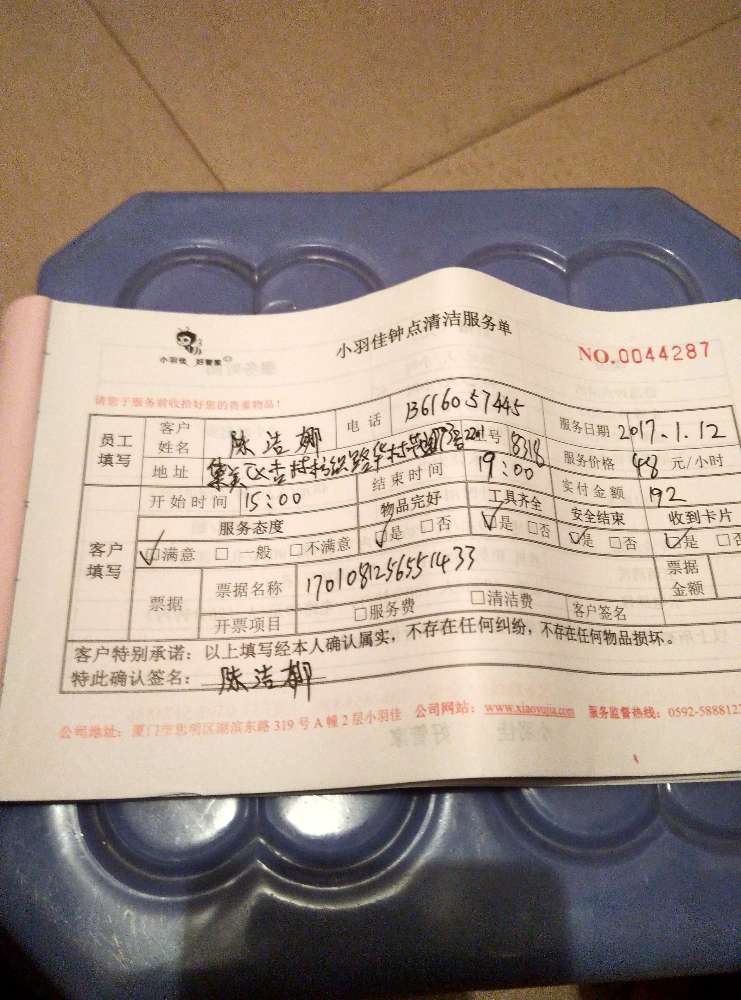 小羽佳 好管家
小羽佳钟点清洁服务单
NO.0044287
请您于服务前收拾好您的贵重物品!
员工填写 客户姓名 陈洁娜 电话 13616057445 服务日期 2017.1.12
地址 集美区杏林 路 号 8318 服务价格 48 元/小时
客户填写 开始时间 15:00 结束时间 19:00 实付金额 192
服务态度 物品完好 工具齐全 安全结束 收到卡片
☑满意 □ 一般 □不满意 ☑是 □否 ☑是 □否 ☑是 □否 ☑是 □否
票据 票据名称 17010812565551433 票据金额
开票项目 □服务费 □清洁费 客户签名
客户特别承诺:以上填写经本人确认属实,不存在任何纠纷,不存在任何物品损坏。
特此确认签名: 陈洁娜
公司地址:厦门市思明区湖滨东路 319 号 A 幢 2 层小羽佳 公司网站:www.xiaoyujia.com 服务监督热线:0592-5888123